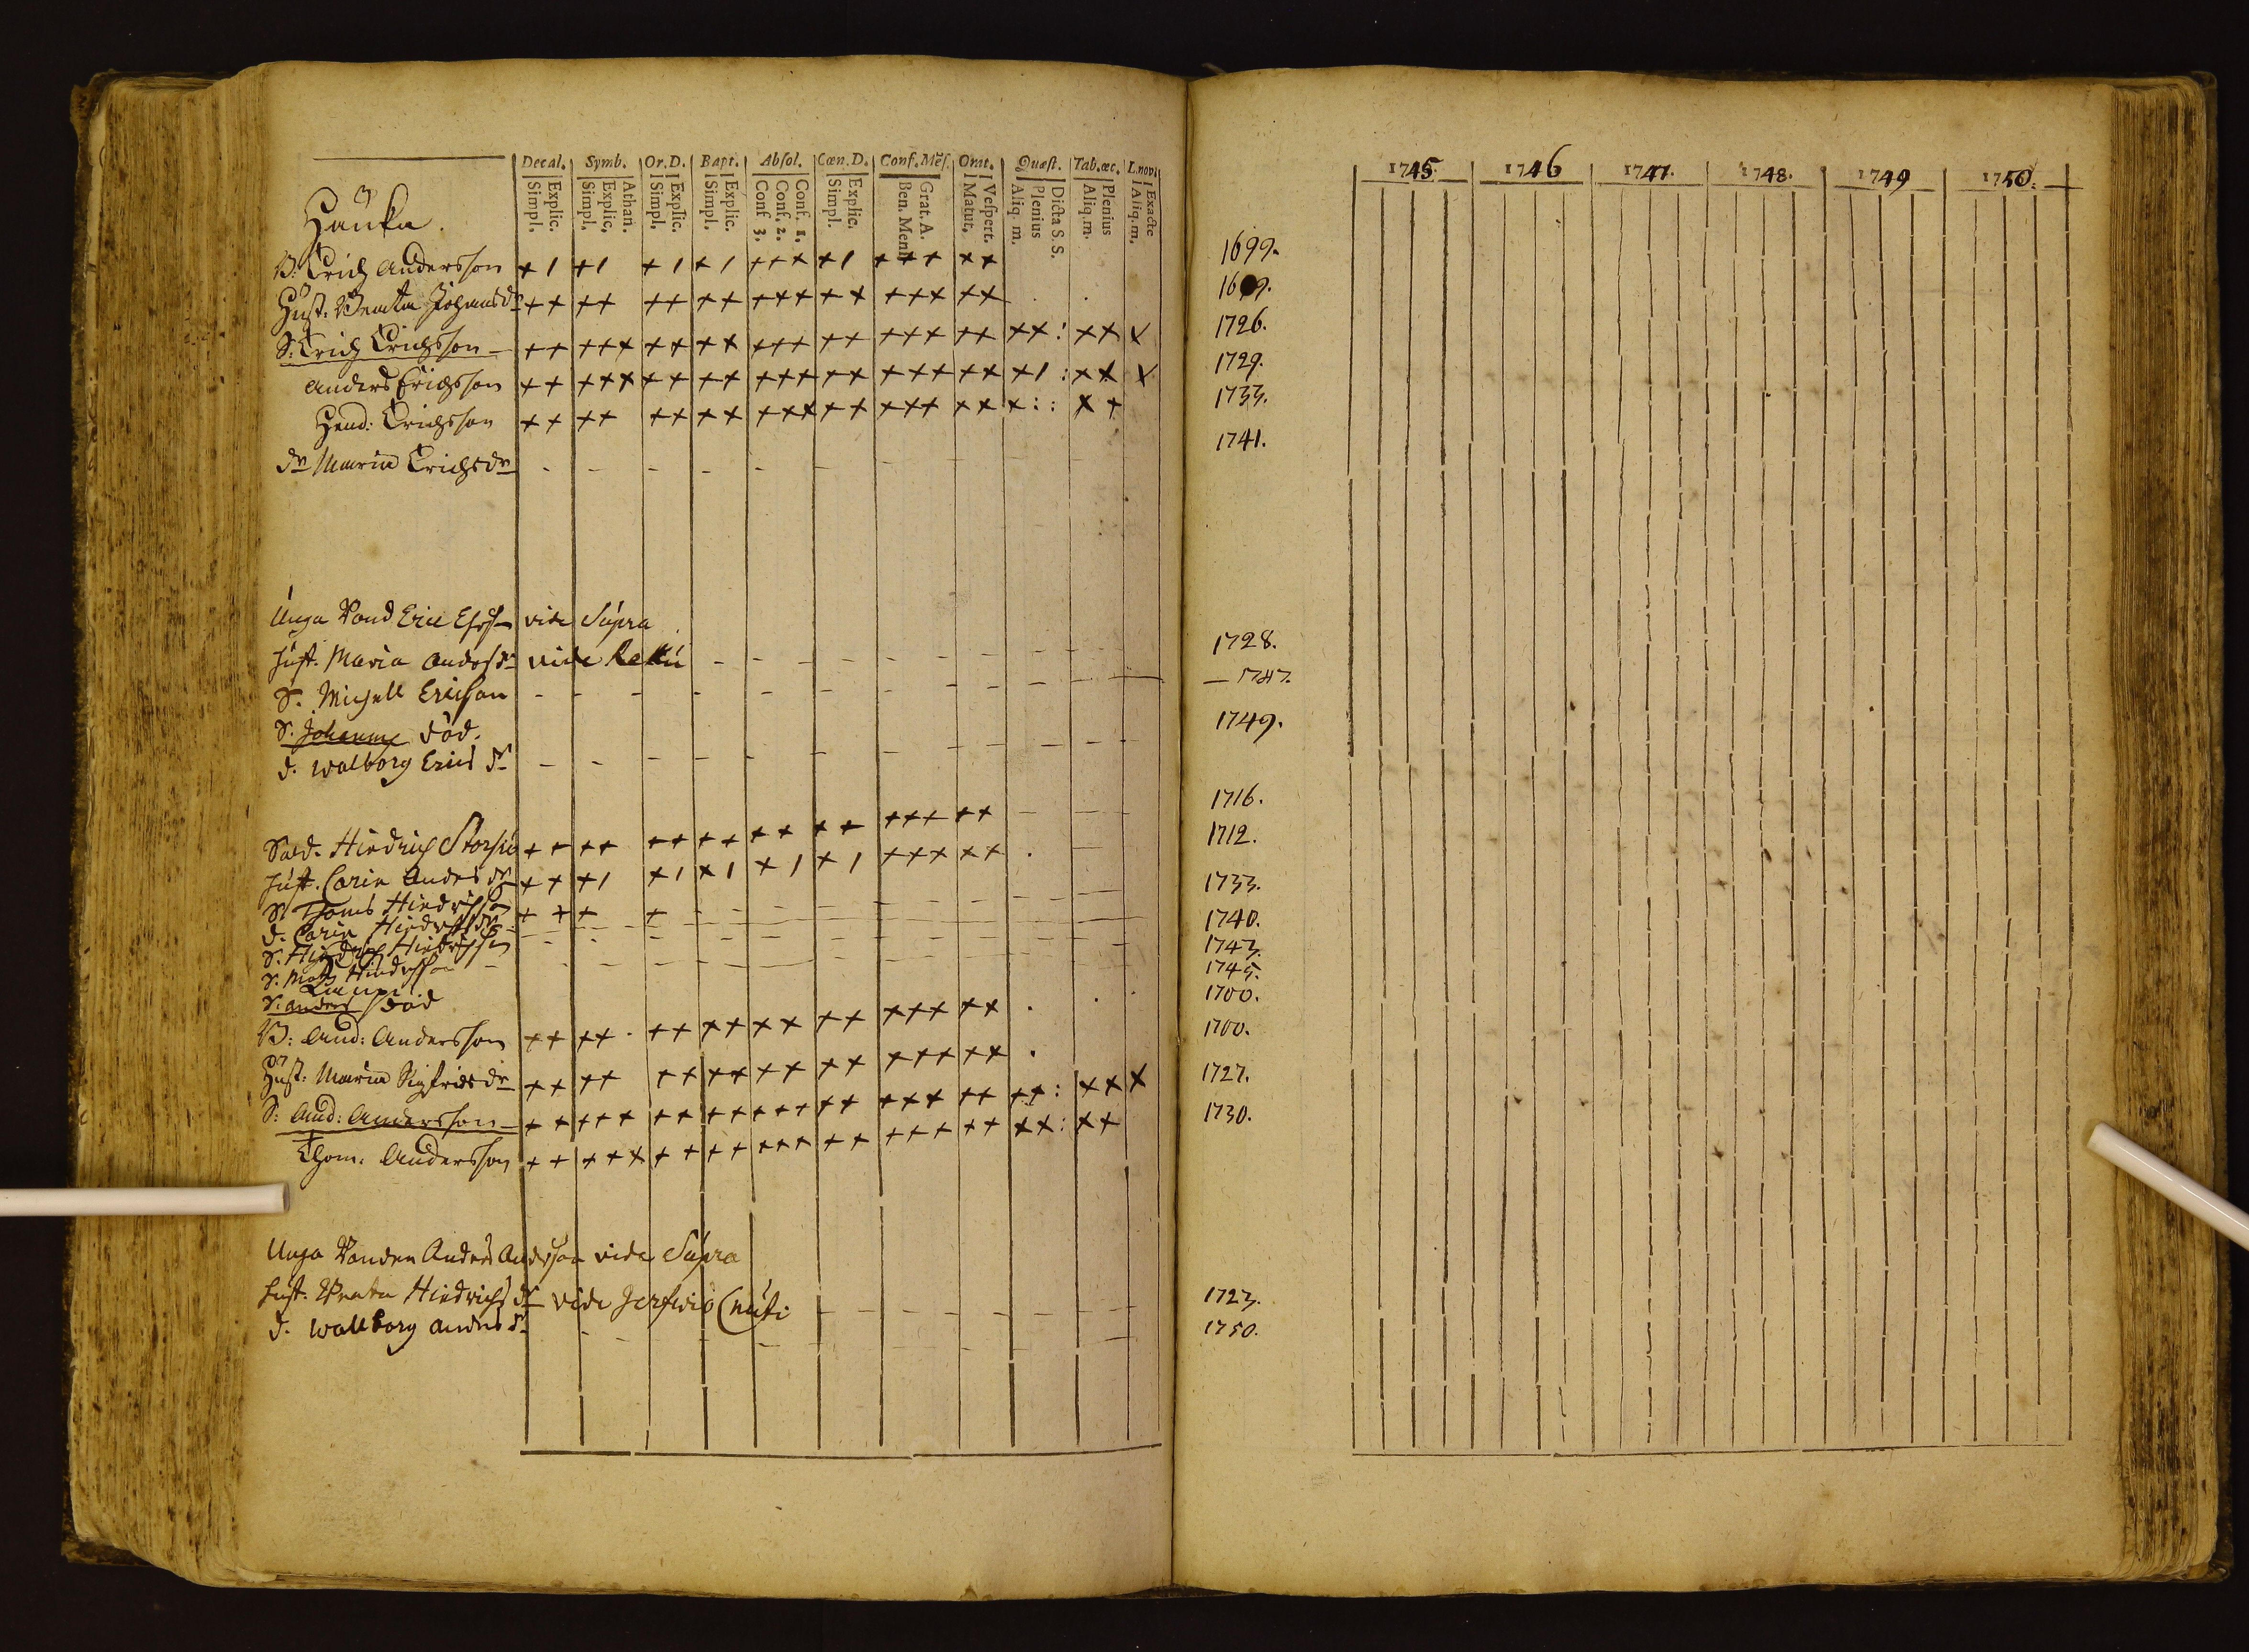 Decal. Symb. Or.D. Bapt. Absol. Cœn.D. Conf.Mēs. Omt. Quæst. Tab.œc. L.novi
Explic. Simpl. Athan. Explic. Simpl. Explic. Simpl. Explic. Simpl. Conf. 1. Conf. 2. Conf 3. Explic. Simpl. Grat. A. Ben. Menſ Vespert. Matut. Dicta S.S. Plenius Aliq. m. Plenius Aliq. m. Exacte Aliq. m.
1745. 1746 1747. 1748. 1749 1750.
Hauka.
B. Erich Andersson + 1 + 1 + 1 + 1 + + + + 1 + + + + + 1699.
Hust: Beata Johansdr + + + + + + + + + + + + + + + + + + 
S. Erich Erichsson + + + + + + + + + + + + + + + + + + + + + : + + + 1726.
Anders Erichsson + + + + + + + + + + + + + + + + + + + + 1 : + + + 1729.
Hend: Erichsson + + + + + + + + + + + + + + + + + + + : : + + 1733.
dr Maria Erichsdr - - - - - - - - 1741.
Unga Bond Eric vide Supra
Hust. Maria Andersdr vide 1728.
S. Michell Ericson - 1747.
S. Johannes död.
d. Walborg Erics dr 1749.
Sold. Hindrich + + + + + + + + + + + + + + + + + 1716.
Hust. Carin Anders dr + + + 1 + 1 + 1 + 1 + 1 + + + + + 1712.
S. Thoms Hindrichson + + + + 1733.
d. Carin Hindrichsdr 1740.
S. Hindrich Hindrichson 1743.
S. Matts Hindrson 1745.
S. Anders död
B: And: Andersson + + + + + + + + + + + + + + + + + 1700.
Hust: Maria Sigfridsdr + + + + + + + + + + + + + + + + + 1700.
S: And: Andersson + + + + + + + + + + + + + + + + + + + + + : + + + 1727.
Thom: Andersson + + + + + + + + + + + + + + + + + + + + + : + + 1730.
Unga Bonden Anders Andersson vide Supra
Hust. Beata Hindrichs dr vide Cnuti 1723.
d. Wallborg Anders dr 1750.